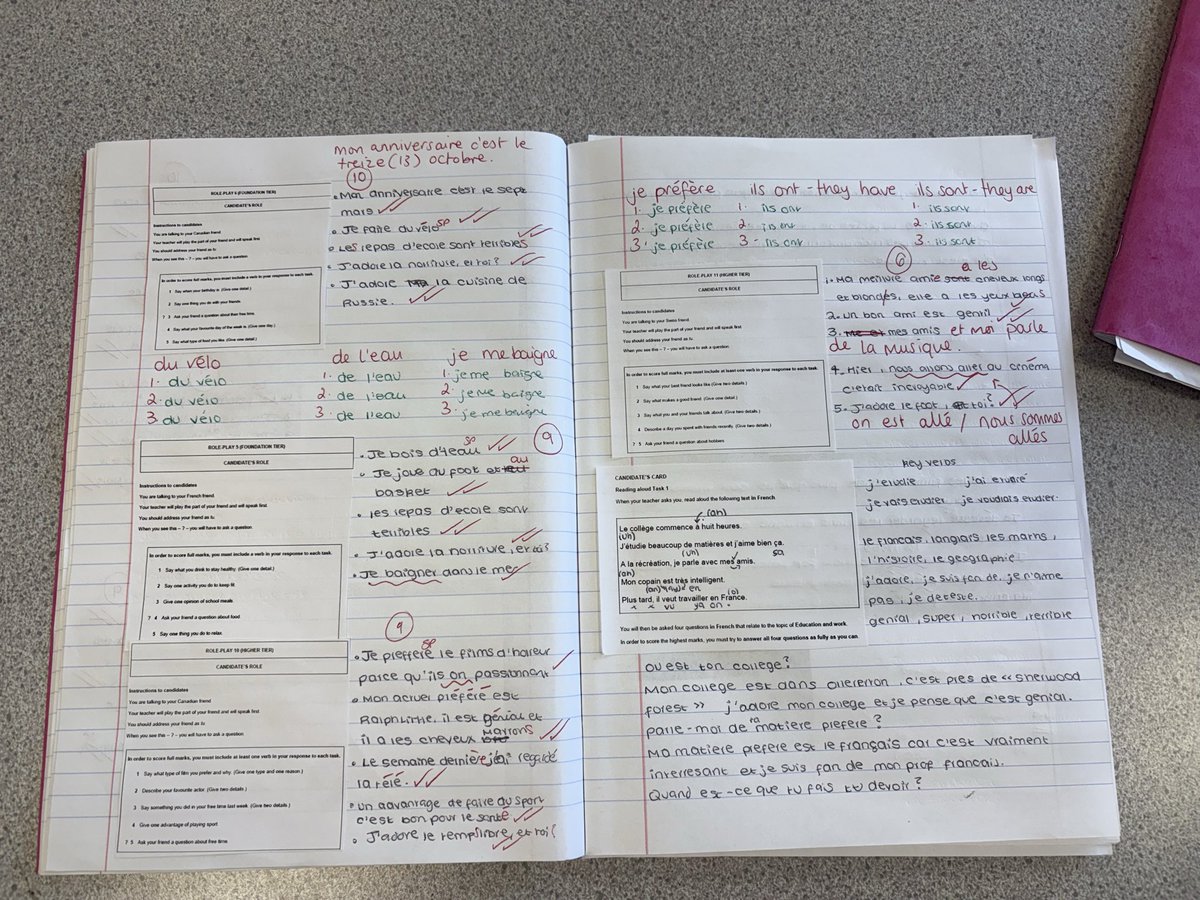 mon anniversaire c'est le
treize (13) octobre.
10
ROLE-PLAY 6 (FOUNDATION TIER)
CANDIDATE'S ROLE
Instructions to candidates
You are talking to your Canadian friend.
Your teacher will play the part of your friend and will speak first.
You should address your friend as tu.
When you see this – ? – you will have to ask a question.
In order to score full marks, you must include a verb in your response to each task.
1 Say when your birthday is. (Give one detail.)
2 Say one thing you do with your friends.
? 3 Ask your friend a question about their free time.
4 Say what your favourite day of the week is. (Give one day.)
5 Say what type of food you like. (Give one detail.)
• Mon anniversaire c'est le sept
mars
• Je faire du vélo sp
• Les repas d'ecole sont terribles
• J'adore la norriture, et toi?
• J'adore la cuisine de
Russie.
du vélo
1. du vélo
2. du vélo
3. du vélo
de l'eau
1. de l'eau
2. de l'eau
3. de l'eau
je me baigne
1. je me baigne
2. je me baigne
3. je me baigne
9
ROLE-PLAY 5 (FOUNDATION TIER)
CANDIDATE'S ROLE
Instructions to candidates
You are talking to your French friend.
Your teacher will play the part of your friend and will speak first.
You should address your friend as tu.
When you see this – ? – you will have to ask a question.
In order to score full marks, you must include a verb in your response to each task.
1 Say what you drink to stay healthy. (Give one detail.)
2 Say one activity you do to keep fit.
3 Give one opinion of school meals.
? 4 Ask your friend a question about food.
5 Say one thing you do to relax.
sp
• Je bois d'leau
• Je joue du foot et au
basket
• les repas d'ecole sont
terribles
• J'adore la norriture, et toi?
• Je baigner dans le mer
9
ROLE-PLAY 10 (HIGHER TIER)
CANDIDATE'S ROLE
Instructions to candidates
You are talking to your Canadian friend.
Your teacher will play the part of your friend and will speak first.
You should address your friend as tu.
When you see this – ? – you will have to ask a question.
In order to score full marks, you must include at least one verb in your response to each task.
1 Say what type of film you prefer and why. (Give one type and one reason.)
2 Describe your favourite actor. (Give two details.)
3 Say something you did in your free time last week. (Give two details.)
4 Give one advantage of playing sport.
? 5 Ask your friend a question about free time.
sp
• Je preffere le films d'horreur
parce qu'ils on passionnant
• Mon acteur préféré est
Ralph Little, il est génial et
il a les cheveux marrons
• Le semaine dernière j'ai regardé
la télé.
• un advantage de faire du sport
c'est bon pour le santé
• J'adore le temps libre, et toi?
je préfère
1. je préfère
2. je préfère
3. je préfère
ils ont - they have
1. ils ont
2. ils ont
3. ils ont
ils sont - they are
1. ils sont
2. ils sont
3. ils sont
6
ROLE-PLAY 11 (HIGHER TIER)
CANDIDATE'S ROLE
Instructions to candidates
You are talking to your Swiss friend.
Your teacher will play the part of your friend and will speak first.
You should address your friend as tu.
When you see this – ? – you will have to ask a question.
In order to score full marks, you must include at least one verb in your response to each task.
1 Say what your best friend looks like (Give two details.)
2 Say what makes a good friend. (Give one detail.)
3 Say what you and your friends talk about. (Give two details.)
4 Describe a day you spent with friends recently. (Give two details.)
? 5 Ask your friend a question about hobbies
a les
1. Ma meilleure amie sont cheveux longs
et blondes, elle a les yeux
2. un bon ami est gentil
3. mes amis et moi parle
de la musique.
4. Hier, nous allons aller au cinéma
c'etait incroyable
5. J'adore le foot, et toi?
on est allé / nous sommes
allés
CANDIDATE'S CARD
Reading aloud Task 1
When your teacher asks you, read aloud the following text in French
(an)
Le collège commence à huit heures.
(uh)
J'étudie beaucoup de matières et j'aime bien ça.
(uh) sa
A la récréation, je parle avec mes amis.
(an)
Mon copain est très intelligent.
Plus tard, il veut travailler en France.
You will then be asked four questions in French that relate to the topic of Education and work
In order to score the highest marks, you must try to answer all four questions as fully as you can
key verbs
j'etudie j'ai etudié
je vais etudier je voudrais etudier.
le francais, langlais les maths,
l'histoire, le geographie
j'adore, je suis fan de, je n'aime
pas, je deteste.
genial, super, horrible, terrible
ou est ton college?
Mon college est dans ollererton, c'est pres de « Sherwood
forest » j'adore mon college et je pense que c'est genial.
parle-moi de ta matiere prefere?
Ma matiere prefere est le français car c'est vraiment
interresant et je suis fan de mon prof francais.
Quand est-ce que tu fais tu devoir?